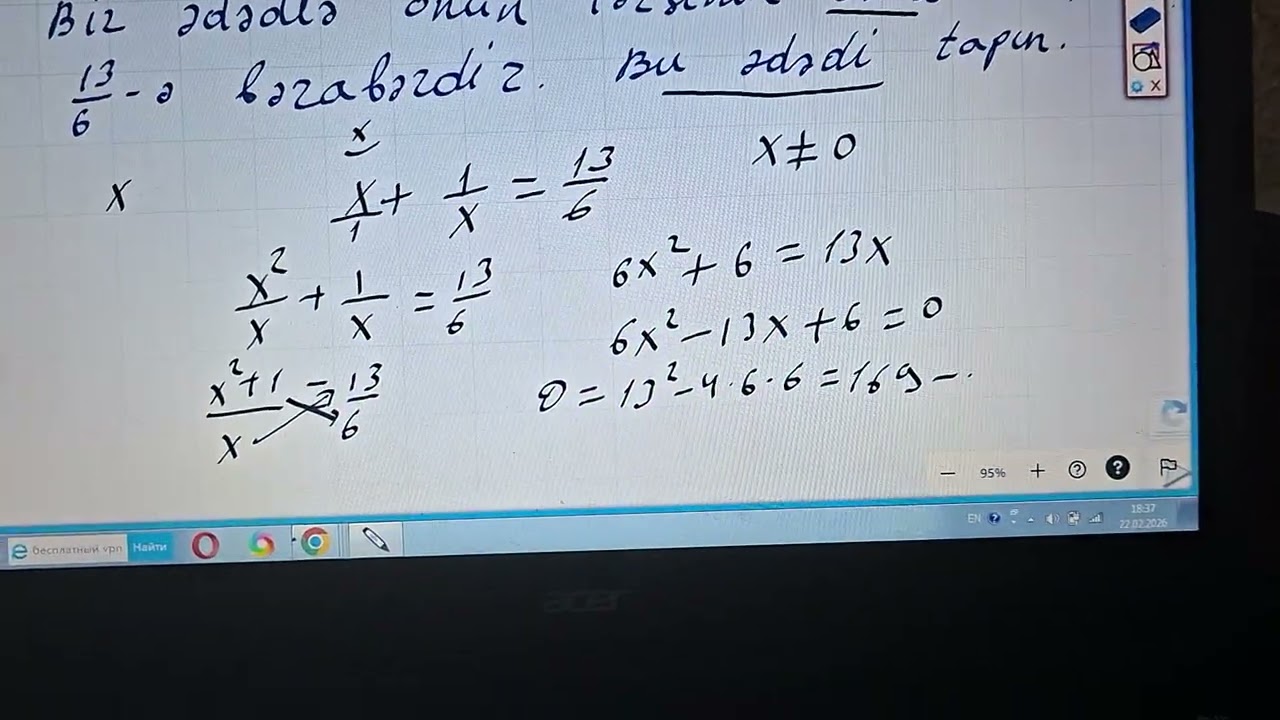 Bir ədədlə onun
13/6 - ə bərabərdir. Bu ədədi tapın.
x
x
x/1 + 1/x = 13/6
x ≠ 0
x²/x + 1/x = 13/6
x²+1/x = 13/6
6x² + 6 = 13x
6x² - 13x + 6 = 0
D = 13² - 4·6·6 = 169 -
95%
бесплатный vpn Найти
EN
18:37
22.02.2026
acer